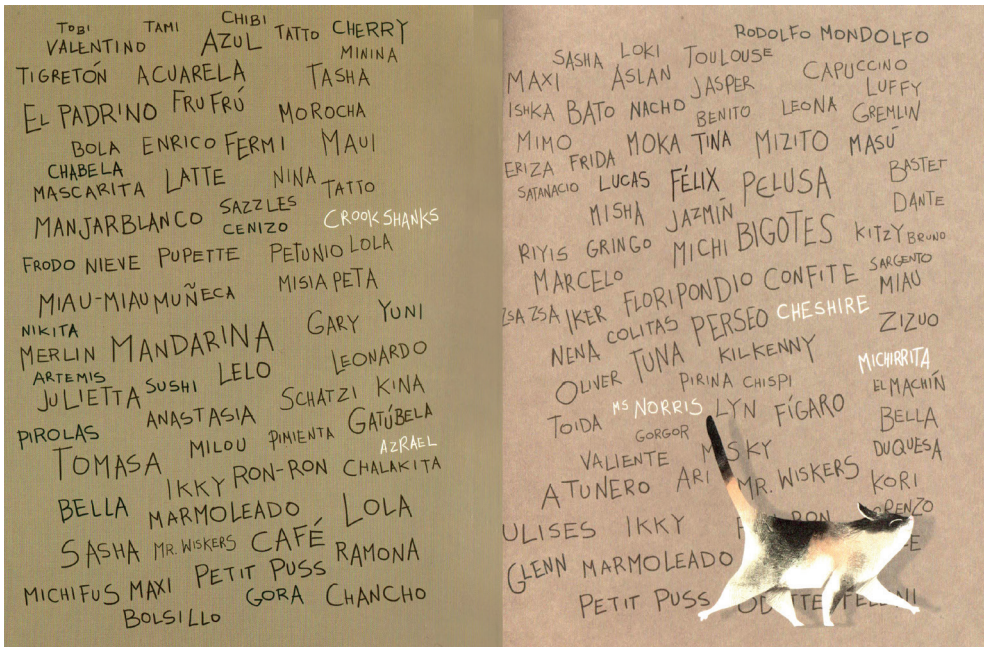 TOBI TAMI CHIBI
VALENTINO AZUL TATTO CHERRY
MININA
TIGRETÓN ACUARELA TASHA
EL PADRINO FRU FRÚ MOROCHA
BOLA ENRICO FERMI MAUI
CHABELA
MASCARITA LATTE NINA TATTO
MANJARBLANCO SAZZLES CROOKSHANKS
CENIZO
FRODO NIEVE PUPETTE PETUNIO LOLA
MIAU-MIAU MUÑECA MISIA PETA
NIKITA
MERLIN MANDARINA GARY YUNI
ARTEMIS
JULIETTA SUSHI LELO LEONARDO
ANASTASIA SCHATZI KINA
PIROLAS MILOU PIMIENTA GATÚBELA
TOMASA AZRAEL
IKKY RON-RON CHALAKITA
BELLA MARMOLEADO LOLA
SASHA MR. WISKERS CAFÉ RAMONA
MICHIFUS MAXI PETIT PUSS GORA CHANCHO
BOLSILLO
RODOLFO MONDOLFO
SASHA LOKI TOULOUSE
MAXI ASLAN JASPER CAPUCCINO
LUFFY
ISHKA BATO NACHO BENITO LEONA GREMLIN
MIMO MOKA TINA MIZITO MASÚ
ERIZA FRIDA BASTET
SATANACIO LUCAS FÉLIX PELUSA
MISHA JAZMÍN DANTE
RIYIS GRINGO MICHI BIGOTES KITZY BRUNO
MARCELO SARGENTO
ZSA ZSA IKER FLORIPONDIO CONFITE MIAU
NENA COLITAS PERSEO CHESHIRE ZIZUO
OLIVER TUNA KILKENNY MICHIRRITA
PIRINA CHISPI EL MACHÍN
TOIDA MS NORRIS LYN FÍGARO BELLA
GORGOR
VALIENTE DUQUESA
ATUNERO ARI MR. WISKERS KORI
ULISES IKKY
GLENN MARMOLEADO
PETIT PUSS